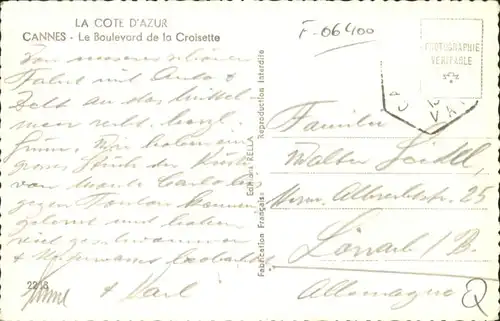 LA COTE D'AZUR
CANNES - Le Boulevard de la Croisette
F-06400
PHOTOGRAPHIE
VERITABLE
Von unserer schönen
Fahrt mit Auto &
Zelt an das Mittel-
meer recht herzl.
Grüsse. Wir haben ein
grosses Stück der Küste
von Monte Carlo bis
gegen Toulon kennen
gelernt und haben
viel geschwommen
&
2218
& Karl
Editions RELLA
Fabrication Française - Reproduction Interdite
Familie
Walter
Herm. Albrechtstr. 25
Lörrach/B.
Allemagne